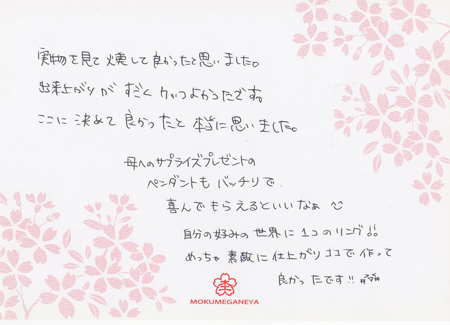 実物を見て来て良かったと思いました。
出来上がりがすごくカッコよかったです。
ここに決めて良かったと本当に思いました。
母へのサプライズプレゼントの
ペンダントもバッチリで、
喜んでもらえるといいなぁ
自分の好みの世界に1つのリング!!
めっちゃ素敵に仕上がりココで作って
良かったです!!
MOKUMEGANEYA